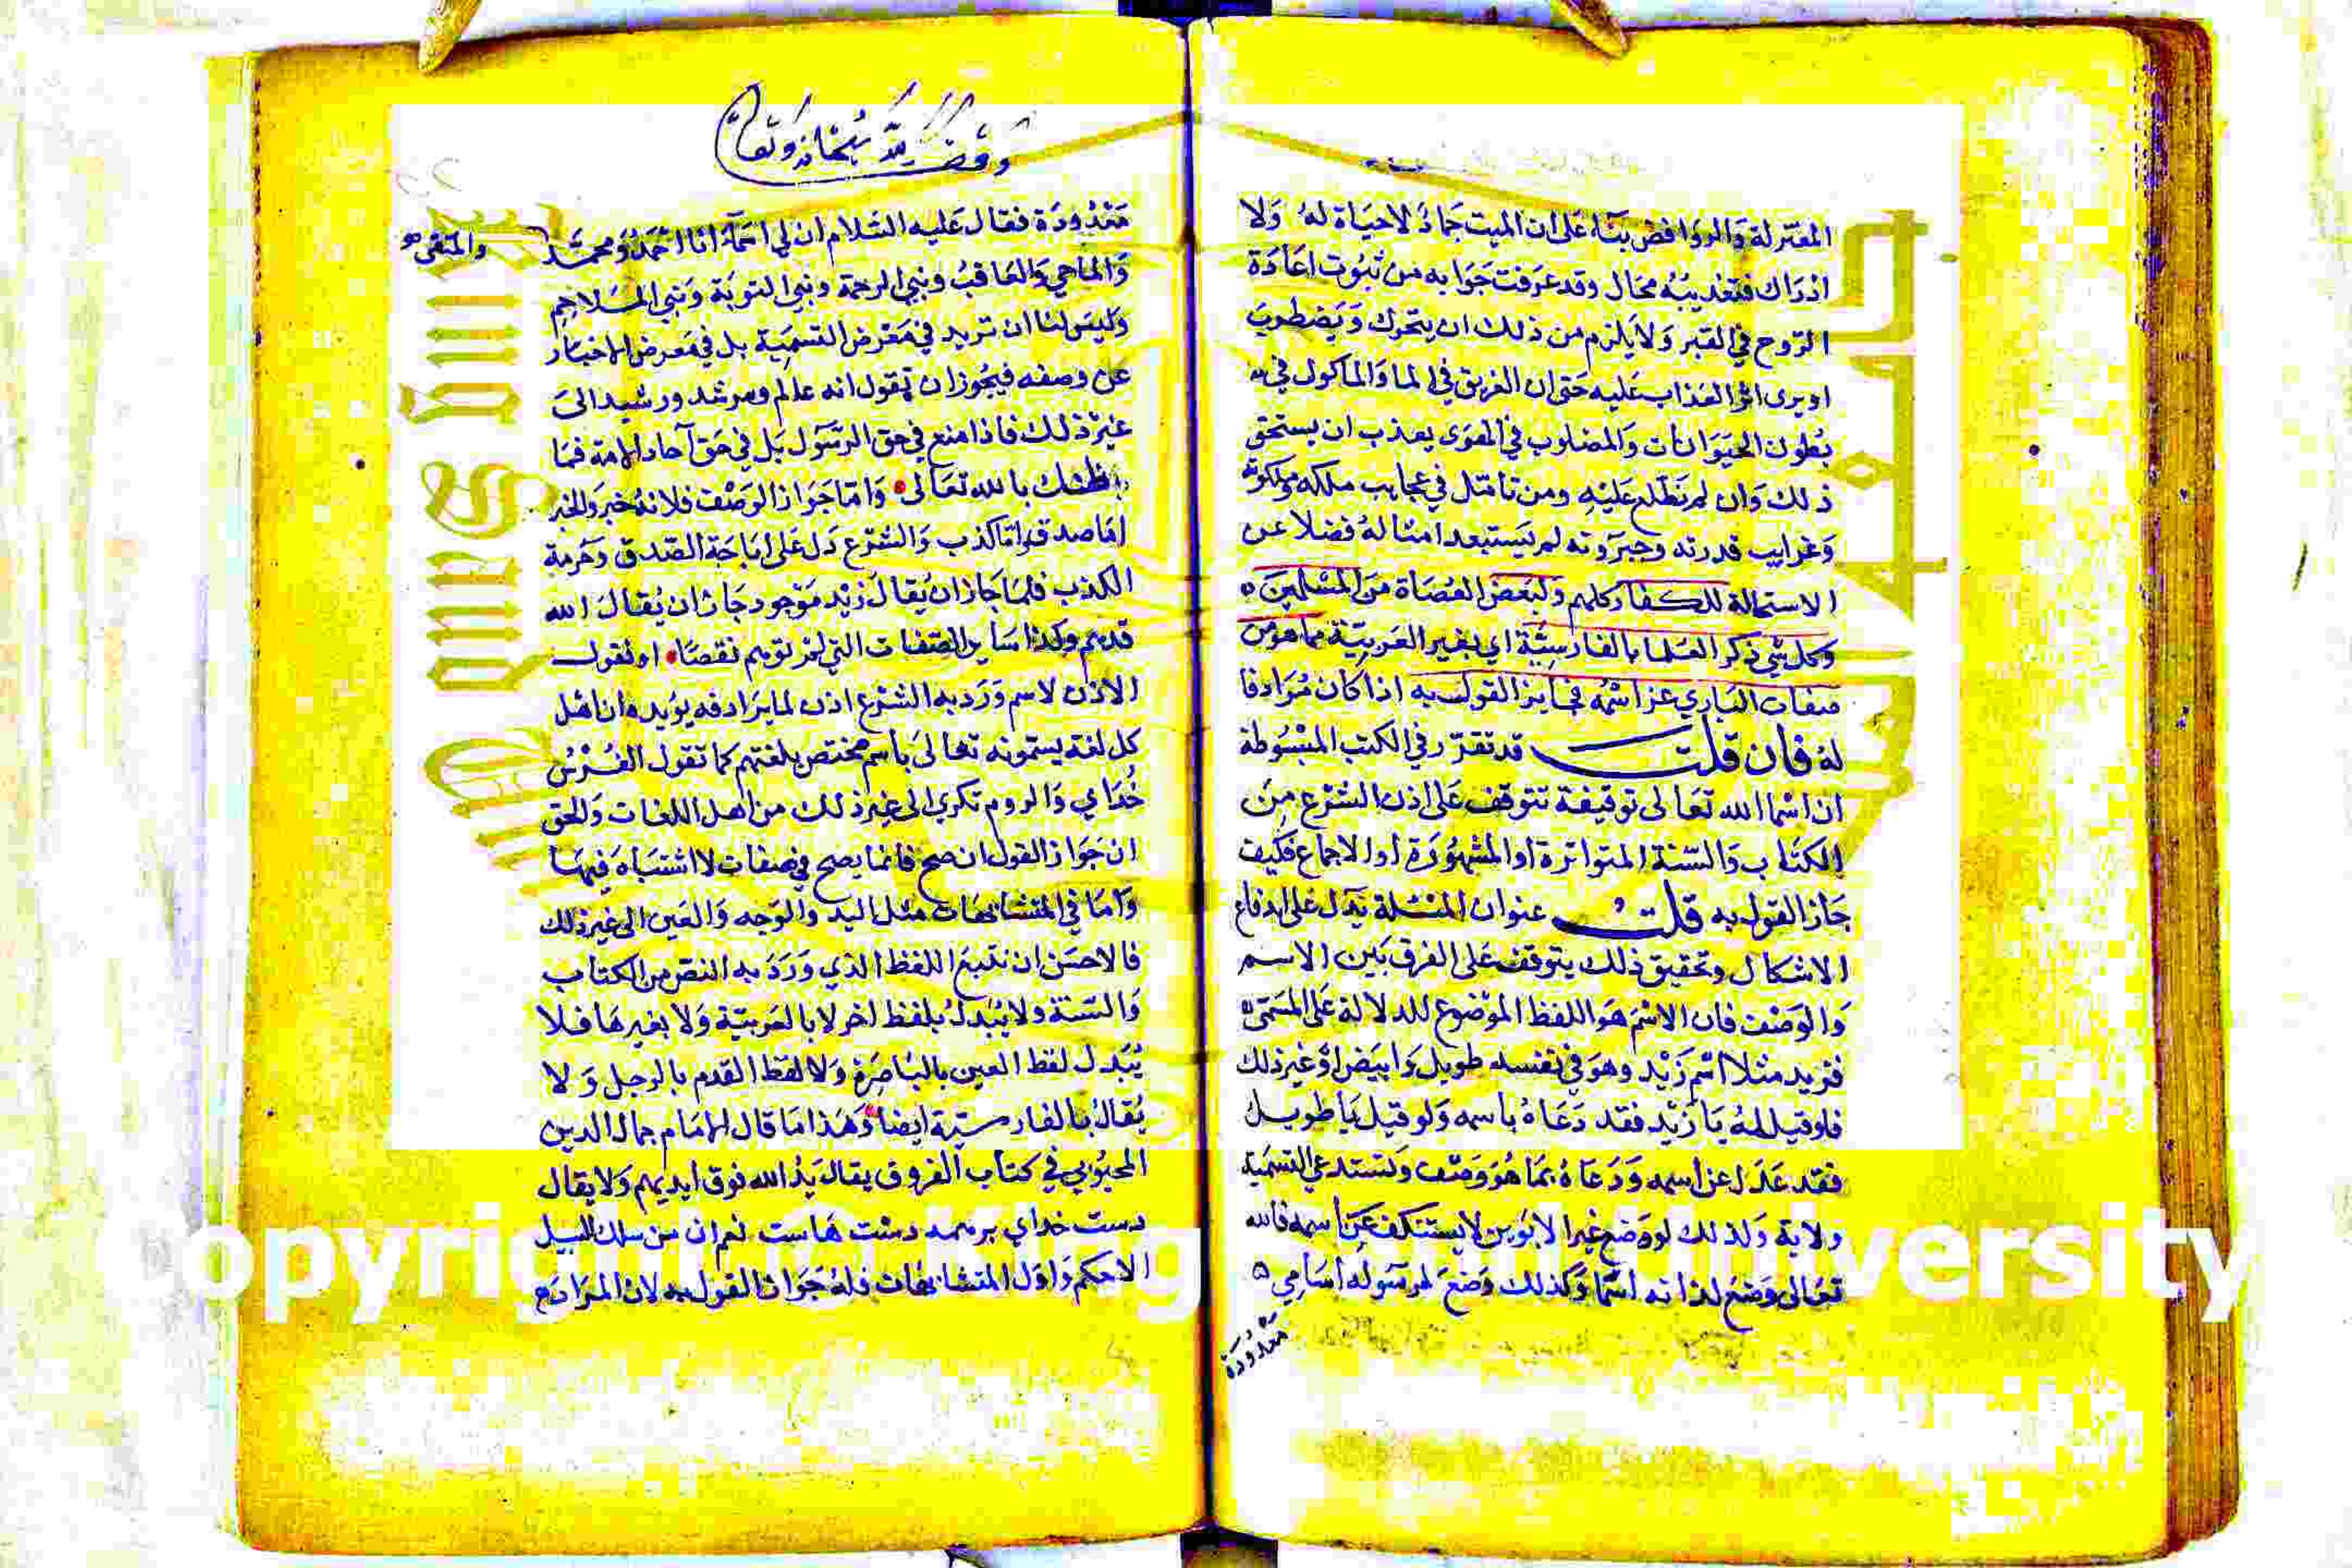 المعتزلة والروافض بناء على ان الميت جماد لا حياة له ولا
ادراك فتعذيبه محال وقد عرفت جوابه من ثبوت اعادة
الروح في القبر ولا يلزم من ذلك ان يتحرك ويضطرب
او يرى اثر العذاب عليه حتى ان الغريق في الما والماكول في
بطون الحيوانات والمصلوب في الهوى يعذب ان يستحق
ذلك وان لم نطلع عليه ومن تامل في عجايب ملكه وملكوته
وغرايب قدرته وجبروته لم يستبعد امثاله فضلا عن
الاستحالة للكفار كلهم ولبعض العصاة من المسلمين
وكل شي ذكر العلما بالفارسية اي بغير العربية مما هو من
صفات الباري عز اسمه فجايز القول به اذا كان مرادفا
له فان قلت قد تقرر في الكتب المبسوطة
ان اسما الله تعالى توقيفة تتوقف على اذن الشرع من
الكتاب والسنة المتواترة او المشهورة او الاجماع فكيف
جاز القول به قلت عنوان المسئلة يدل على اندفاع
الاشكال وتحقيق ذلك يتوقف على الفرق بين الاسم
والوصف فان الاسم هو اللفظ الموضوع للدلالة على المسمى
فزيد مثلا اسم زيد وهو في نفسه طويل وابيض او غير ذلك
فلو قيل له يا زيد فقد دعاه باسمه ولو قيل يا طويل
فقد عدل عن اسمه ودعاه بما هو وصف وتستدعي التسمية
ولاية ولذلك لو وضع غير الابوين لا يستنكف عن اسمه فالله
تعالى وضع لذاته اسما وكذلك وضع لرسوله اسامي
معدودة
وقف لله سبحانه وتعالى
معدودة فقال عليه السلام ان لي اسماء انا احمد ومحمد والمقفى
والماحي والعاقب ونبي الرحمة ونبي التوبة ونبي الملاحم
وليس لنا ان نزيد في معرض التسمية بل في معرض الاخبار
عن وصفه فيجوز ان نقول انه عالم ومرشد ورشيد الى
غير ذلك فاذا منع في حق الرسول بل في حق آحاد الامة فما
ظنك بالله تعالى واما جواز الوصف فلانه خبر والخبر
اما صدق واما كذب والشرع دل على اباحة الصدق وحرمة
الكذب فلما جاز ان يقال زيد موجود جاز ان يقال الله
قديم وكذا ساير الصفات التي لم توهم نقصا او نقول
الاذن لاسم ورد به الشرع اذن لما يرادفه يؤيده ان اهل
كل لغة يسمونه تعالى باسم مختص بلغتهم كما تقول الفرس
خداي والروم تكري الى غير ذلك من اهل اللغات والحق
ان جواز القول ان صح فانما يصح في صفات لا اشتباه فيها
واما في المتشابهات مثل اليد والوجه والعين الى غير ذلك
فالاحسن ان نتبع اللفظ الذي ورد به النص من الكتاب
والسنة ولا يبدل بلفظ اخر لا بالعربية ولا بغيرها فلا
يبدل لفظ العين بالباصرة ولا لفظ القدم بالرجل ولا
يقال بالفارسية ايضا وهذا ما قال الامام جمال الدين
المحبوبي في كتاب الفروق يقال يد الله فوق ايديهم ولا يقال
دست خداي بر همه دست هاست نعم ان من سلك السبيل
الاحكم واول المتشابهات فله جواز القول به لان المراد مع
Copyright © King Saud University
جامعة الملك سعود